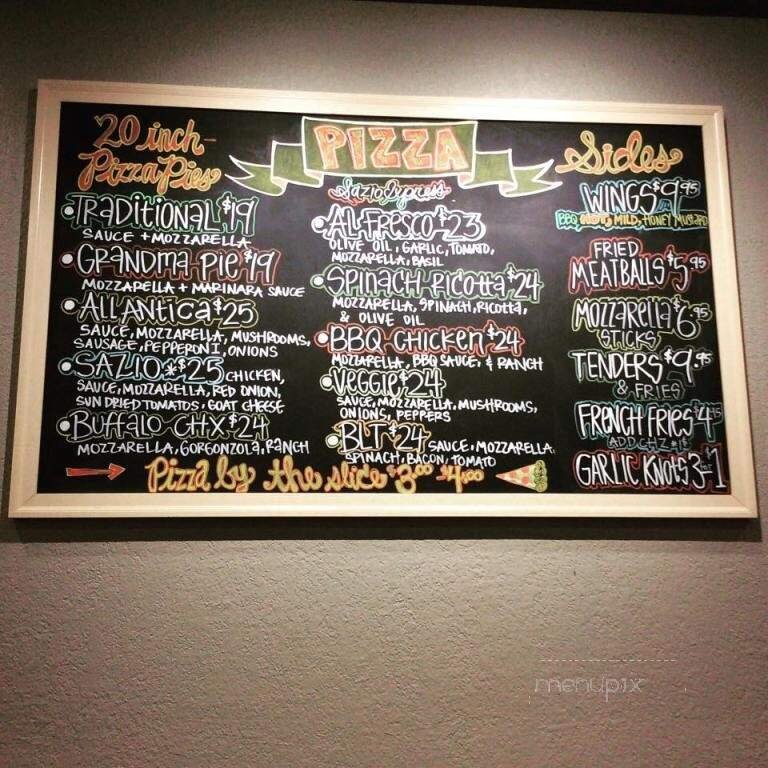 20 inch-
Pizza Pies
Traditional $19
Sauce + Mozzarella
Grandma Pie $19
Mozzarella + Marinara Sauce
All Antica $25
Sauce, Mozzarella, Mushrooms,
Sausage, Pepperoni, Onions
Sazio * $25 Chicken,
Sauce, Mozzarella, Red Onion,
Sun Dried Tomatos, Goat Cheese
Buffalo CHX $24
Mozzarella, Gorgonzola, Ranch
PIZZA
Sazio Express
Al Fresco $23
Olive Oil, Garlic, Tomato,
Mozzarella, Basil
Spinach Ricotta $24
Mozzarella, Spinach, Ricotta,
& Olive Oil
BBQ Chicken $24
Mozzarella, BBQ Sauce, & Ranch
Veggie $24
Sauce, Mozzarella, Mushrooms,
Onions, Peppers
BLT $24 Sauce, Mozzarella
Spinach, Bacon, Tomato
Pizza by the slice $3.00 $4.00
Sides
Wings $9.95
BBQ, HOT, MILD, HONEY MUSTARD
Fried
Meatballs $5.95
Mozzarella $6.95
Sticks
Tenders $9.95
& Fries
French Fries $4.95
ADD CHZ * $1
Garlic Knots 3 for $1
menupix